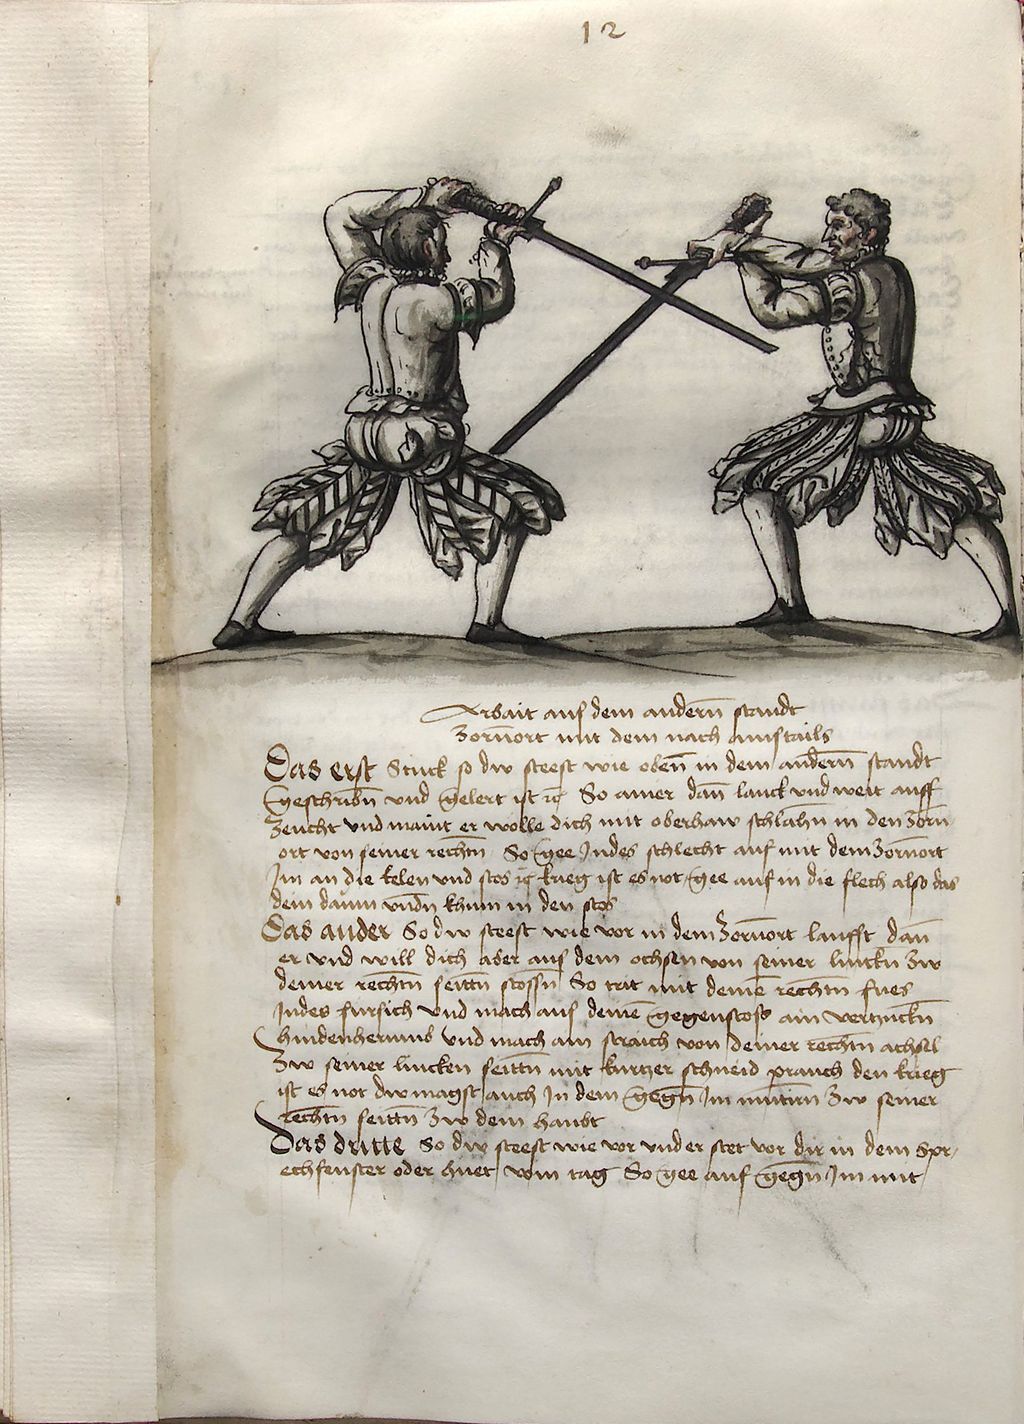 12
Arbait aus dem andern̄ standt
Zorn̄ort mit dem nach
Das erst Stuck so dw steest wie oben̄ in dem andern̄ standt
geschribn̄ vnd gelert ist ꝛc̄ So ainer dan̄ lanck vnd weit auff
zeucht vnd maint er wolle dich mit oberhaw schlahn̄ in den Zorn
ort von seiner rechtn̄ So gee Jndes schlecht auf mit dem Zorn̄ort
Jm an die kelen vnd stos krieg ist es not gee auf in die flech also das
dein daum vndn̄ khum in den stos
Das ander So dw steest wie vor in dem Zorn̄ort laufft dan̄
er vnd will dich aber aus dem ochsen von seiner linckn̄ Zw
deiner rechtn̄ seittn̄ stossn̄ So trit mit deinē rechtn̄ fues
Jndes fursich vnd mach aus deinē gegenstoss ain vertzuckn̄
hindenherumb vnd mach ain straich von deiner rechtn̄ achsel
Zw seiner lincken seittn̄ mit kurtzer schneid prauch den krieg
ist es not dw magst auch Jn dem gegn̄ Jm mutirn Zw seiner
rechtn̄ seittn̄ Zw dem haubt
Das dritte So dw steest wie vor vnd er stet vor dir in dem Spr
echfenster oder huet vom tag So gee auf gegn̄ Jm mit